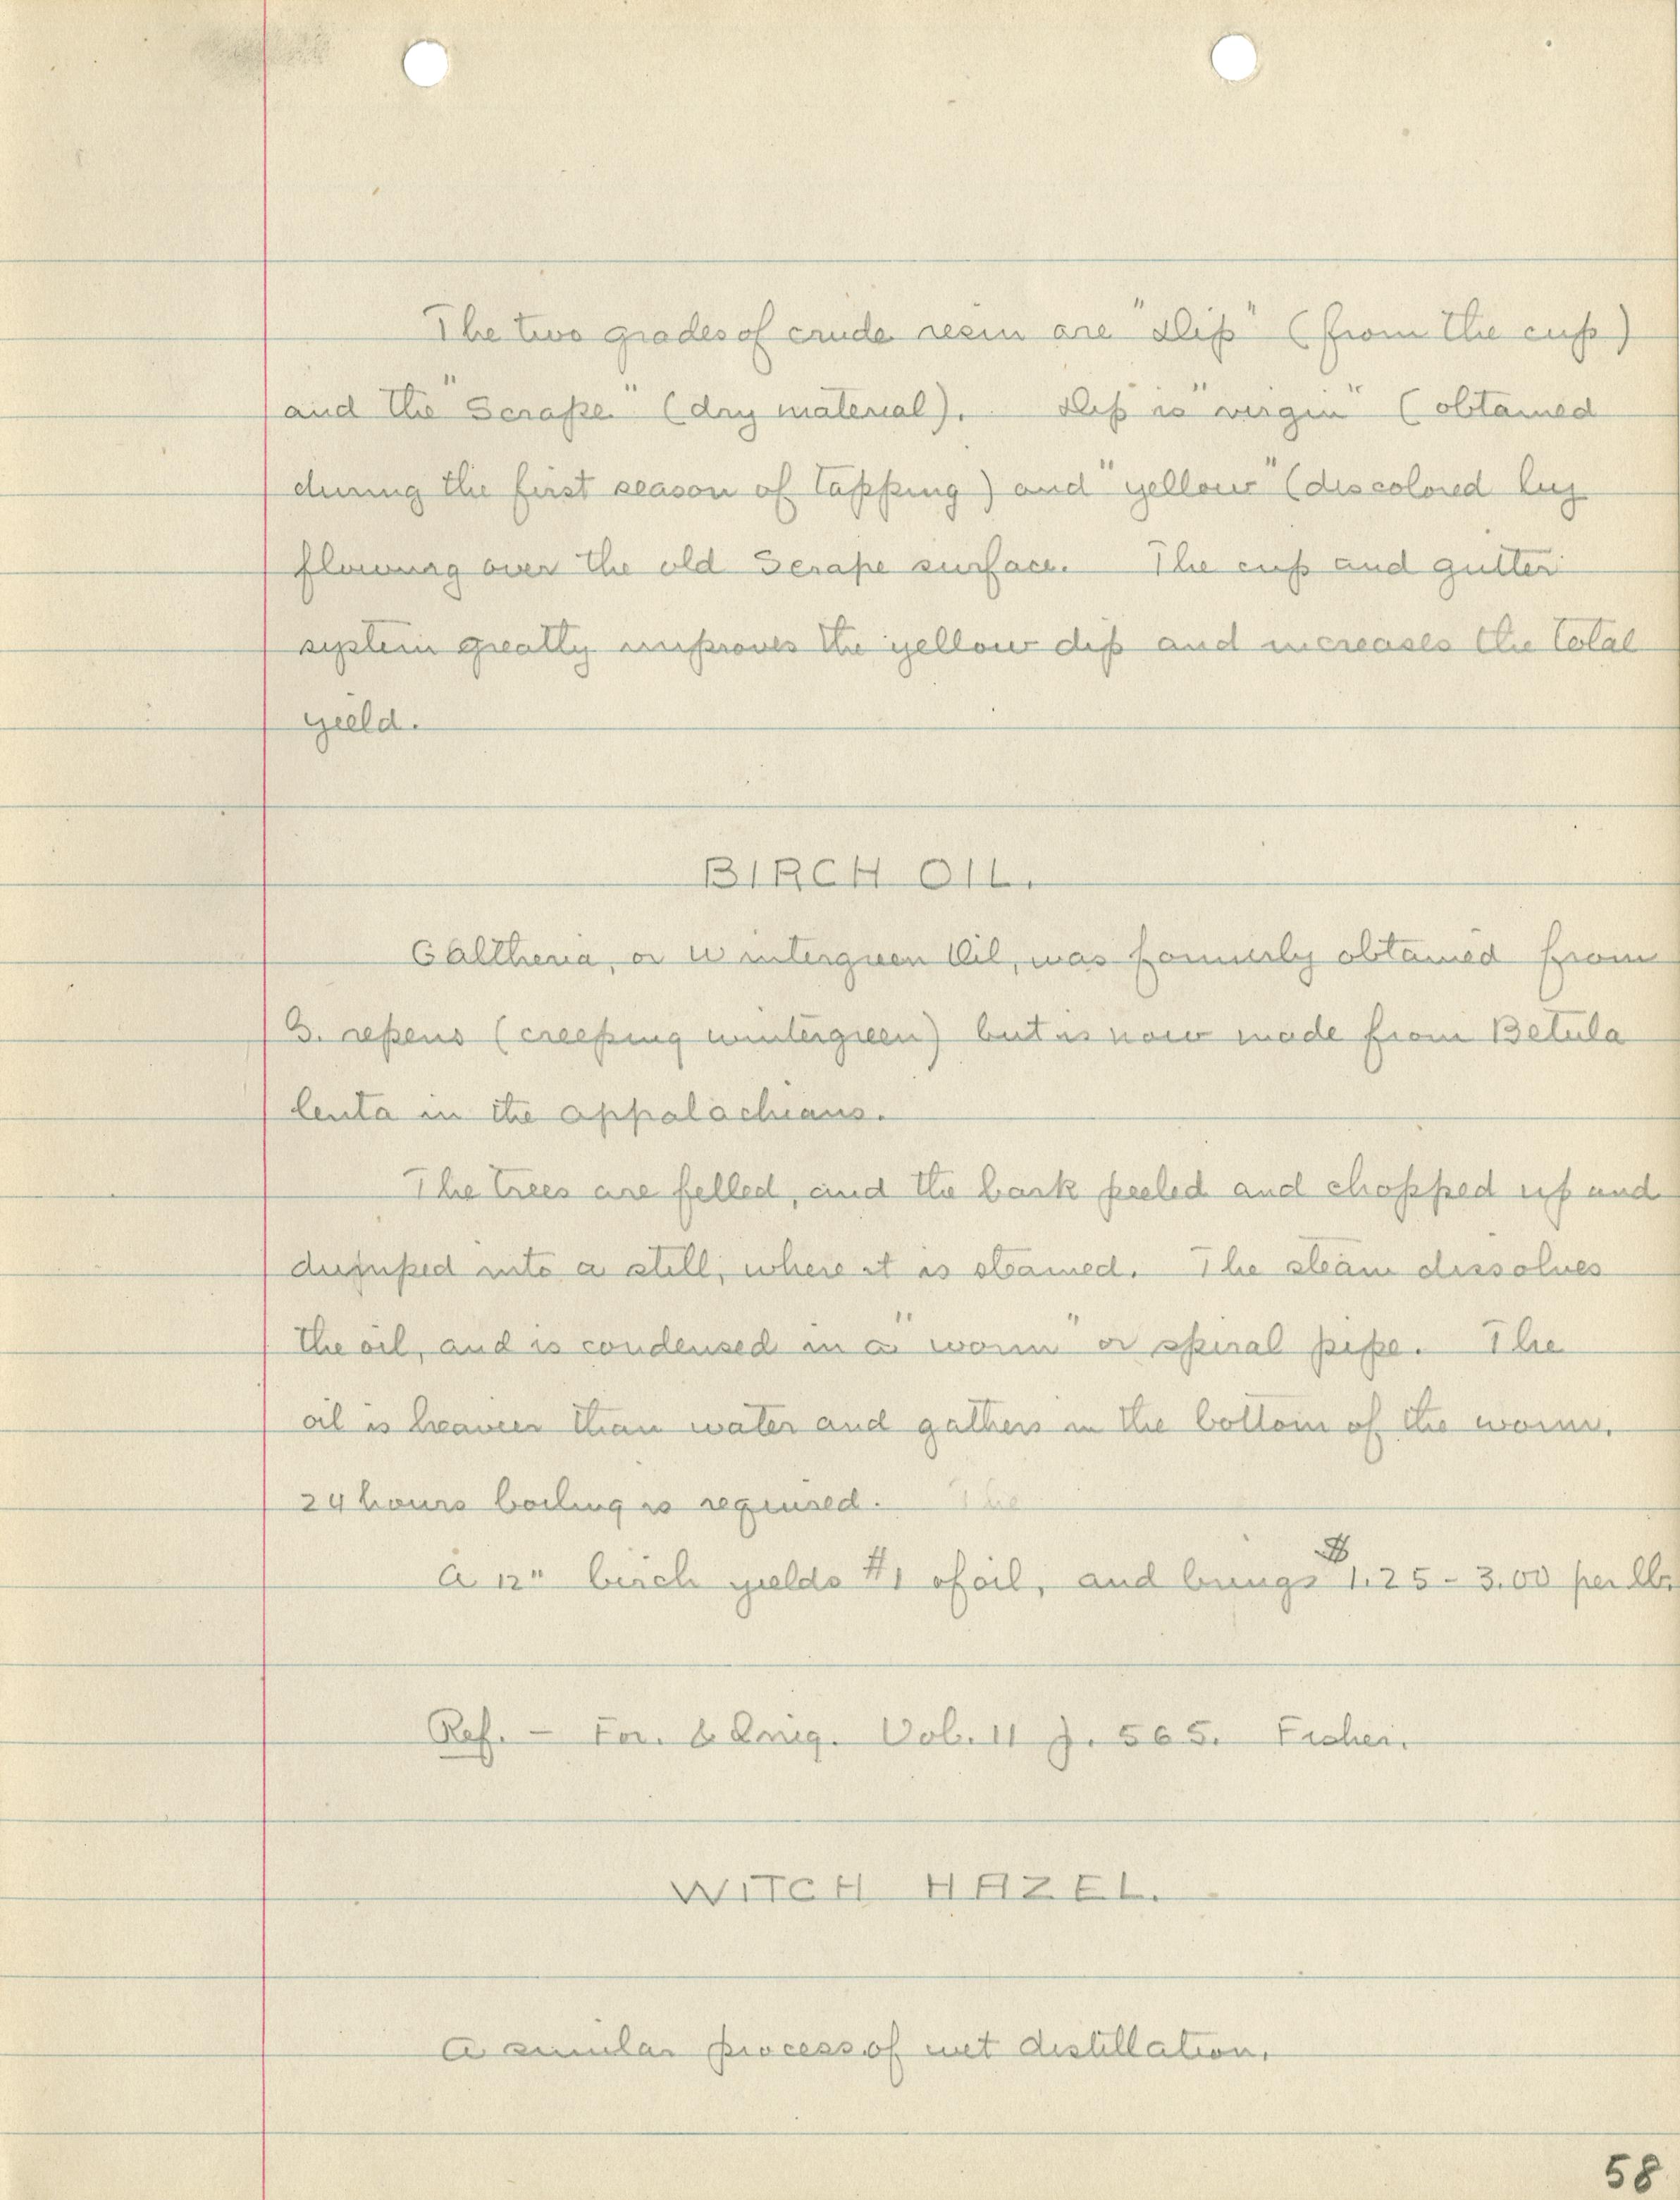 The two grades of crude resin are "dip" (from the cup)
and the "Scrape" (dry material). Dip is "virgin" (obtained
during the first season of tapping) and "yellow" (discolored by
flowing over the old Scrape surface. The cup and gutter
system greatly improves the yellow dip and increases the total
yield.
BIRCH OIL.
Galtheria, or Wintergreen Oil, was formerly obtained from
G. repens (creeping wintergreen) but is now made from Betula
lenta in the appalachians.
The trees are felled, and the bark peeled and chopped up and
dumped into a still, where it is steamed. The steam dissolves
the oil, and is condensed in a "worm" or spiral pipe. The
oil is heavier than water and gathers in the bottom of the worm.
24 hours boiling is required. The
A 12" birch yields #1 of oil, and brings $1.25 - 3.00 per lb.
Ref. - For. & Vol. 11 p. 565. Fisher.
WITCH HAZEL.
A similar process of wet distillation.
58